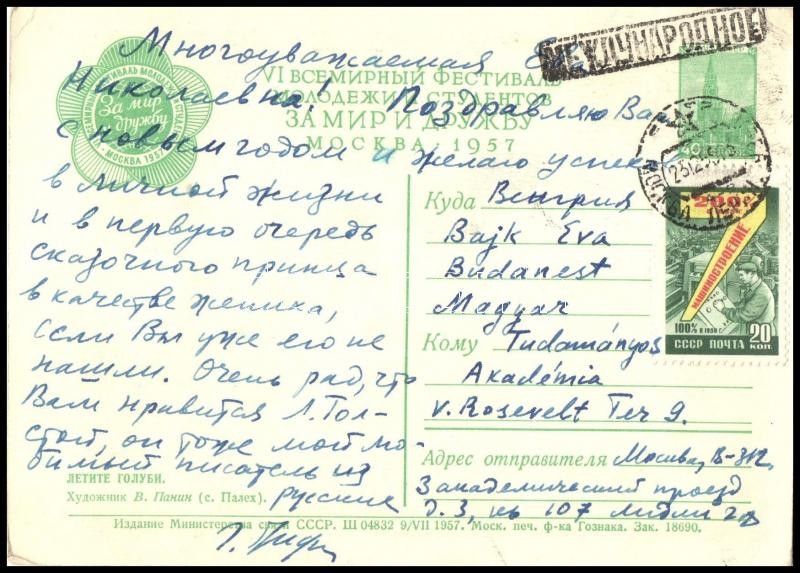 МЕЖДУНАРОДНОЕ
Многоуважаемая
Николаевна! Поздравляю Вас
с новым годом и желаю успеха
в личной жизни
и в первую очередь
сказочного принца
в качестве жениха,
если Вы уже его не
нашли. Очень рад, что
Вам нравится Л. Тол-
стой, он тоже мой лю-
бимый писатель из
русских
VI ВСЕМИРНЫЙ ФЕСТИВАЛЬ
МОЛОДЕЖИ И СТУДЕНТОВ
ЗА МИР И ДРУЖБУ
МОСКВА, 1957
За мир
дружбу
МОСКВА 1957
Куда Венгрия
Bajk Eva
Budapest
Magyar
Кому Tudományos
Akadémia
v. Rosevelt Ter 9.
Адрес отправителя Москва, В-312,
3 академический проезд
д. 3, кв 107
ЛЕТИТЕ ГОЛУБИ.
Художник В. Панин (с. Палех).
Издание Министерства связи СССР. Ш 04832 9/VII 1957. Моск. печ. ф-ка Гознака. Зак. 18690.
40
МОСКВА
200
МАШИНОСТРОЕНИЕ
100% В 1958 г.
СССР ПОЧТА 20 КОП.